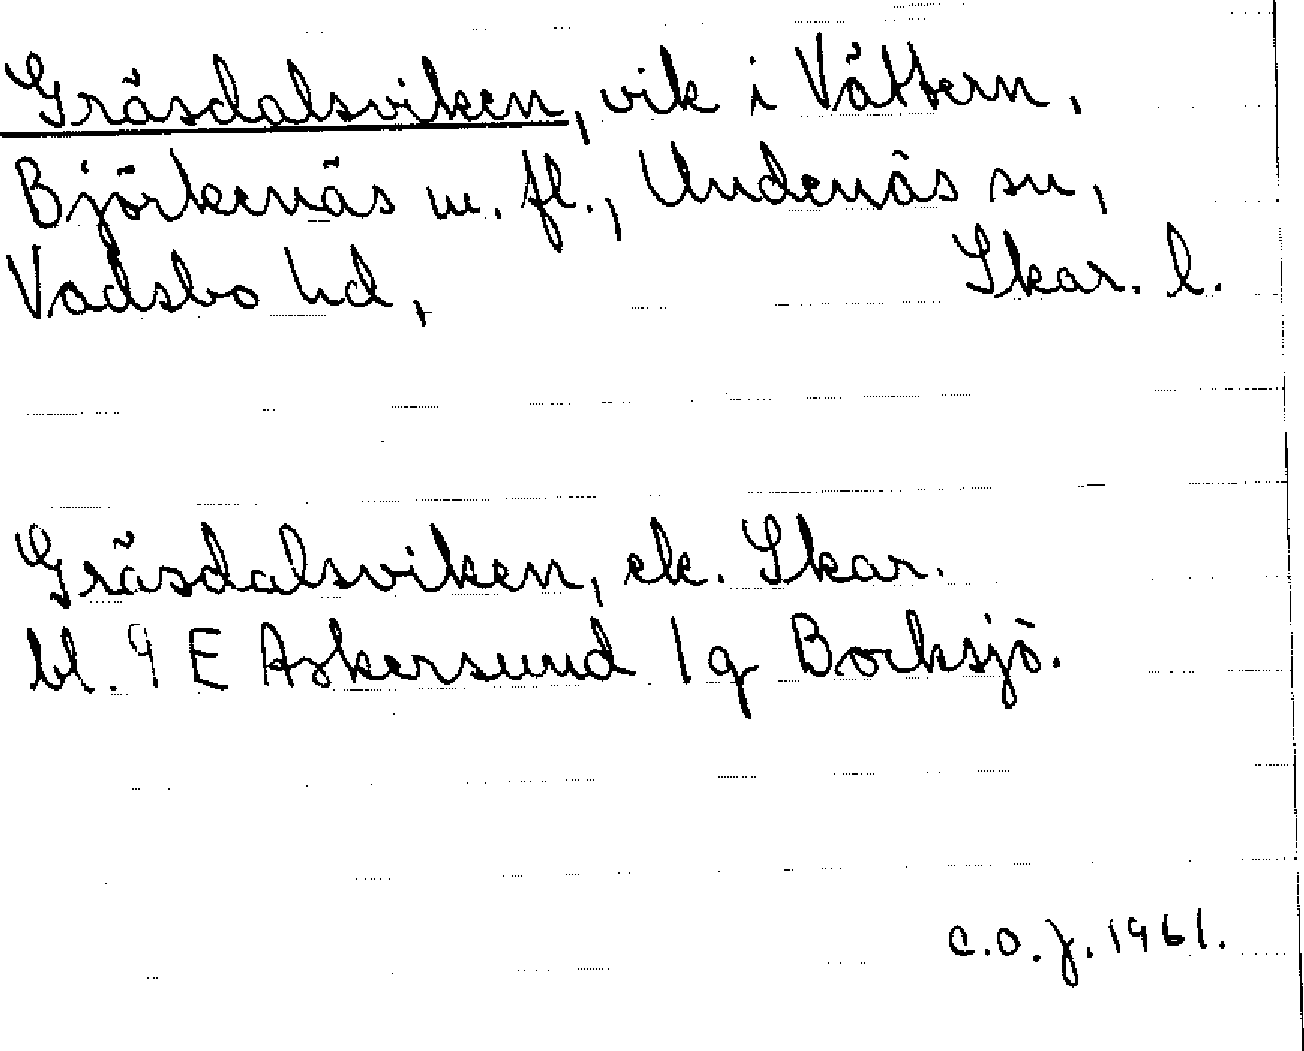 Gräsdalsviken, vik i Vättern,
Björkenäs m. fl., Undenäs sn,
Vadsbo hd, Skar. l.
Gräsdalsviken, ek. Skar.
bl. 9 E Askersund 1g Bocksjö.
C.O.J. 1961.